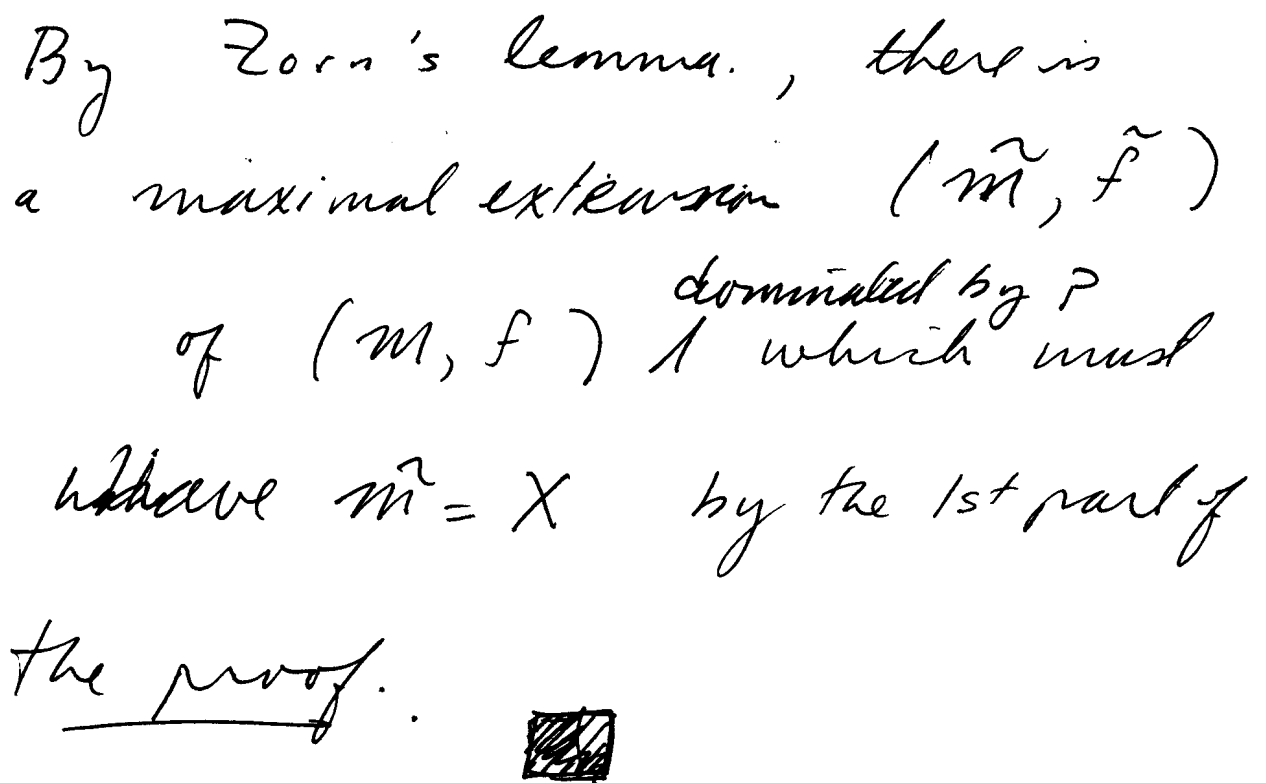 By Zorn's lemma., there is
a maximal extension (m̃, f̃)
dominated by p
of (m, f) ⋀ which must
have m̃ = X by the 1st part of
the proof..